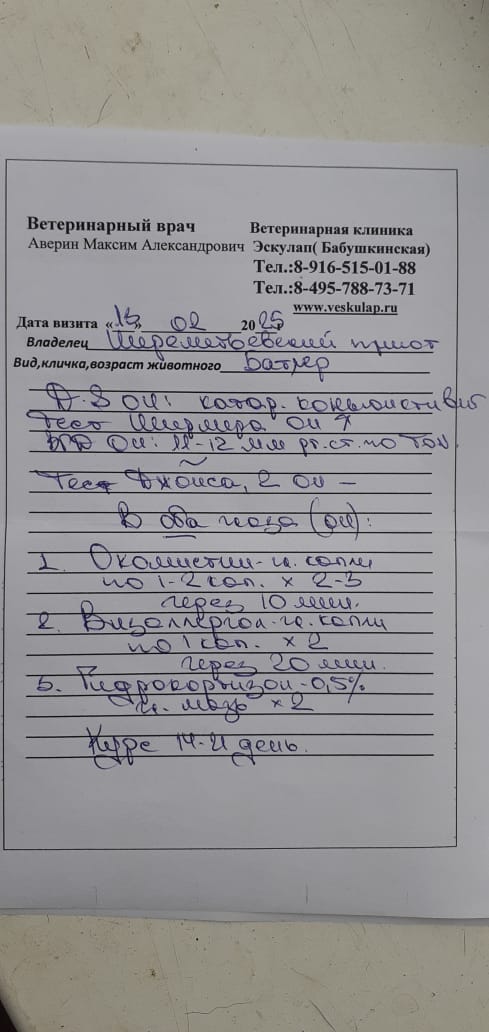 Ветеринарный врач
Аверин Максим Александрович
Ветеринарная клиника
Эскулап( Бабушкинская)
Тел.:8-916-515-01-88
Тел.:8-495-788-73-71
www.veskulap.ru
Дата визита «15» 02 2025
Владелец Шереметьевский приют
Вид,кличка,возраст животного Батлер
D.S OU: катар. конъюнктивит
Тест Ширмера OU ↑
ВГД OU: 11-12 мм рт.ст. по TOV.
Тест Джонса, 2 OU —
В оба глаза (OU):
1. Окомистин - гл. капли
по 1-2 кап. x 2-3
через 10 мин.
2. Визаллергол - гл. капли
по 1 кап. x 2
через 20 мин.
3. Гидрокортизон - 0,5%
гл. мазь x 2
Курс 14-21 день.